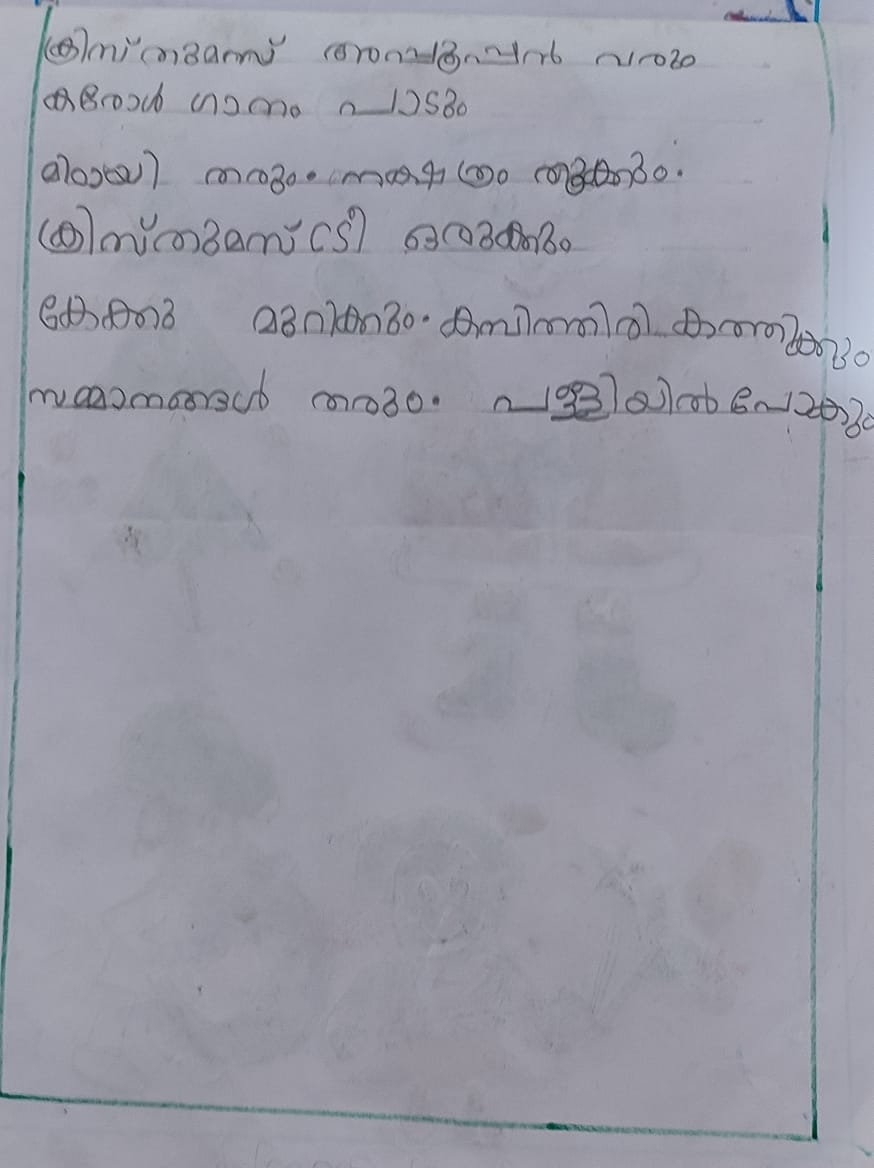 ക്രിസ്തുമസ് അപ്പുപ്പൻ വരും
കരോൾ ഗാനം പാടും
മിഠായി തരും. നക്ഷത്രം തൂക്കും.
ക്രിസ്തുമസ് ട്രീ ഒരുക്കും
കേക്കു മുറിക്കും. മെഴുകുതിരി കത്തിക്കും
സമ്മാനങ്ങൾ തരും. പള്ളിയിൽ പോകും